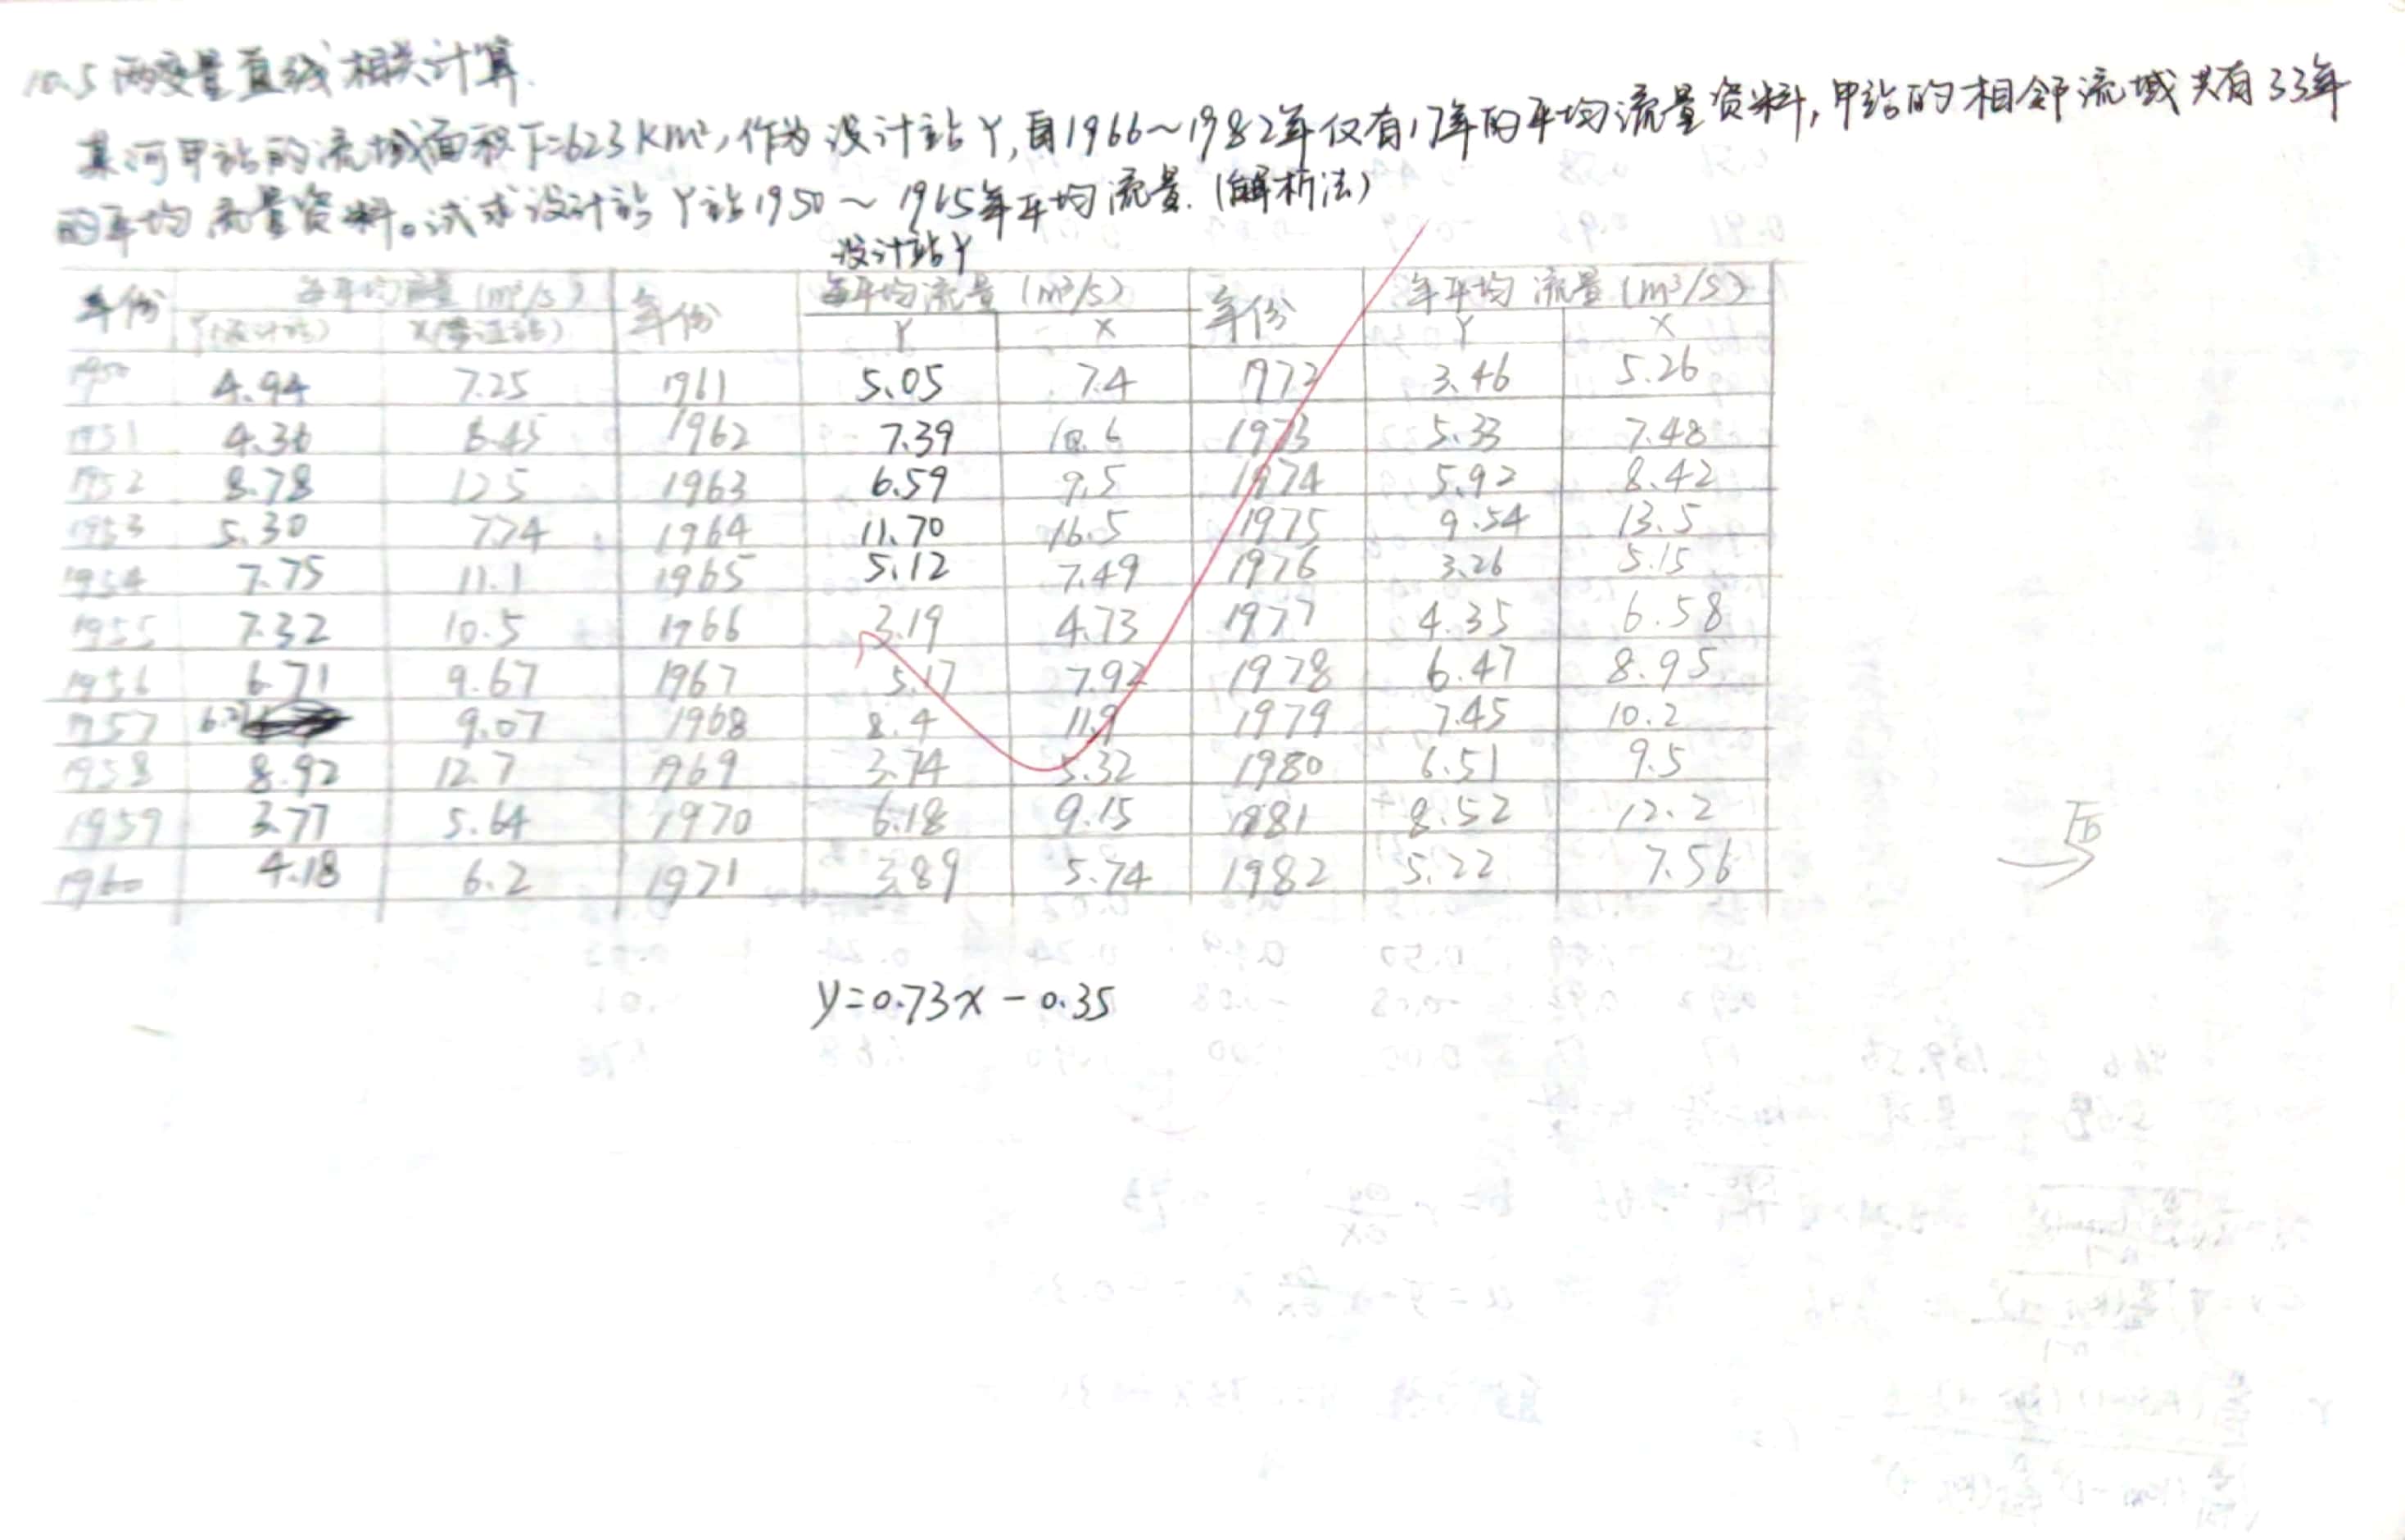 10.5 两变量直线相关计算.
某河甲站的流域面积F=623 Km²,作为设计站Y,自1966~1982年仅有17年的平均流量资料,甲站的相邻流域共有33年
的平均流量资料。试求设计站Y站1950~1965年平均流量.(解析法)
设计站Y
年份 年平均流量(m³/s) 年份 年平均流量(m³/s) 年份 年平均流量(m³/s)
Y(设计站) X(参证站) Y X Y X
1950 4.94 7.25 1961 5.05 7.4 1972 3.46 5.26
1951 4.36 6.45 1962 7.39 10.6 1973 5.33 7.48
1952 8.78 12.5 1963 6.59 9.5 1974 5.92 8.42
1953 5.30 7.74 1964 11.70 16.5 1975 9.54 13.5
1954 7.75 11.1 1965 5.12 7.49 1976 3.26 5.15
1955 7.32 10.5 1966 3.19 4.73 1977 4.35 6.58
1956 6.71 9.67 1967 5.17 7.92 1978 6.47 8.95
1957 9.07 1968 8.4 11.9 1979 7.45 10.2
1958 8.92 12.7 1969 3.74 5.32 1980 6.51 9.5
1959 3.77 5.64 1970 6.18 9.15 1981 8.52 12.2
1960 4.18 6.2 1971 3.89 5.74 1982 5.22 7.56
y=0.73x-0.35